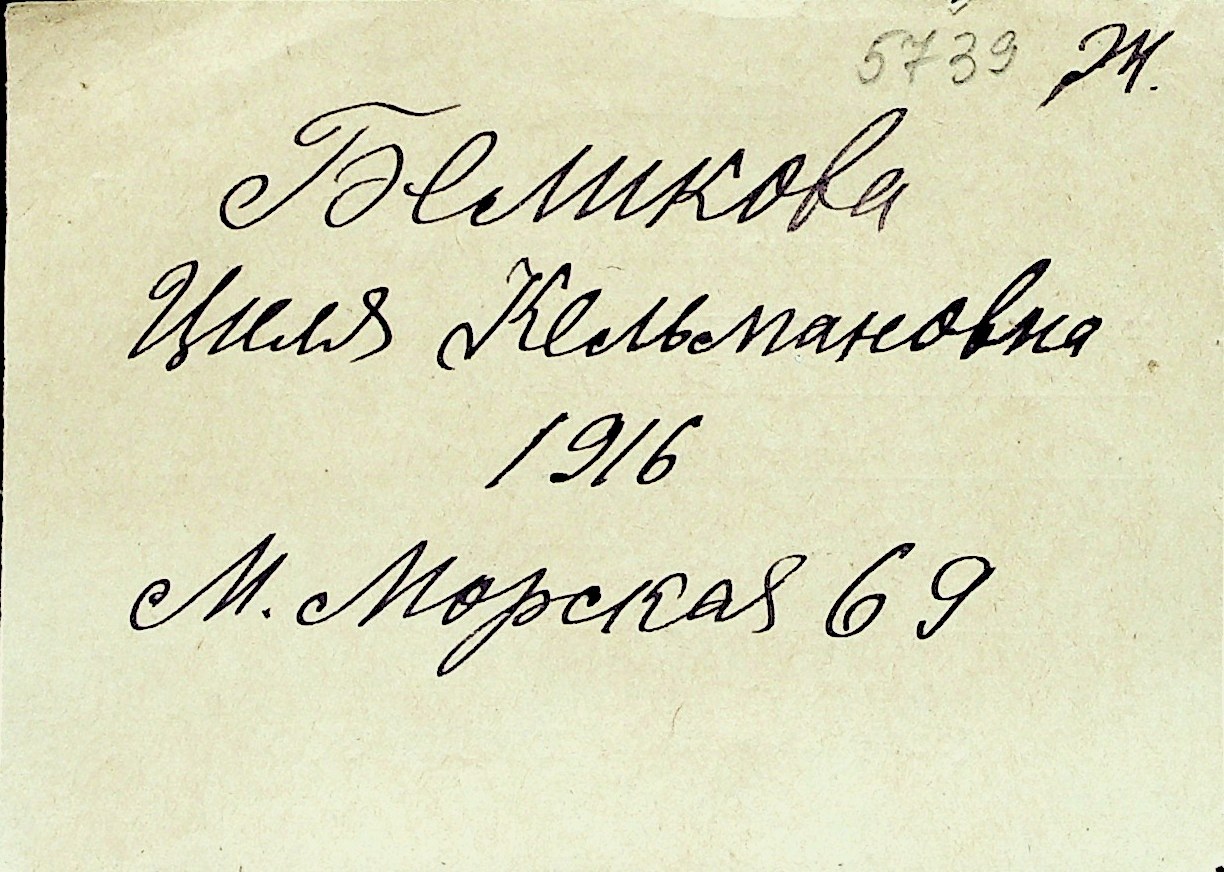 5739 Ж.
Беликова
Циля Кельмановна
1916
М. Морская 69